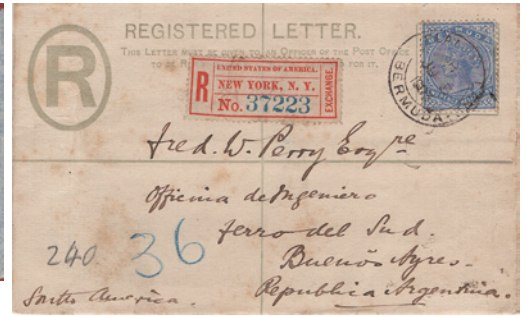 REGISTERED LETTER.
THIS LETTER MUST BE GIVEN TO AN OFFICER OF THE POST OFFICE
TO BE R FOR IT.
R
UNITED STATES OF AMERICA.
R
NEW YORK, N. Y.
No. 37223
EXCHANGE.
BERMUDA
BERMUDA
Fred. W. Perry Esqre
Officina de Ingeniero
Ferro del Sud.
Buenos Ayres.
Republica Argentina.
240
36
South America.